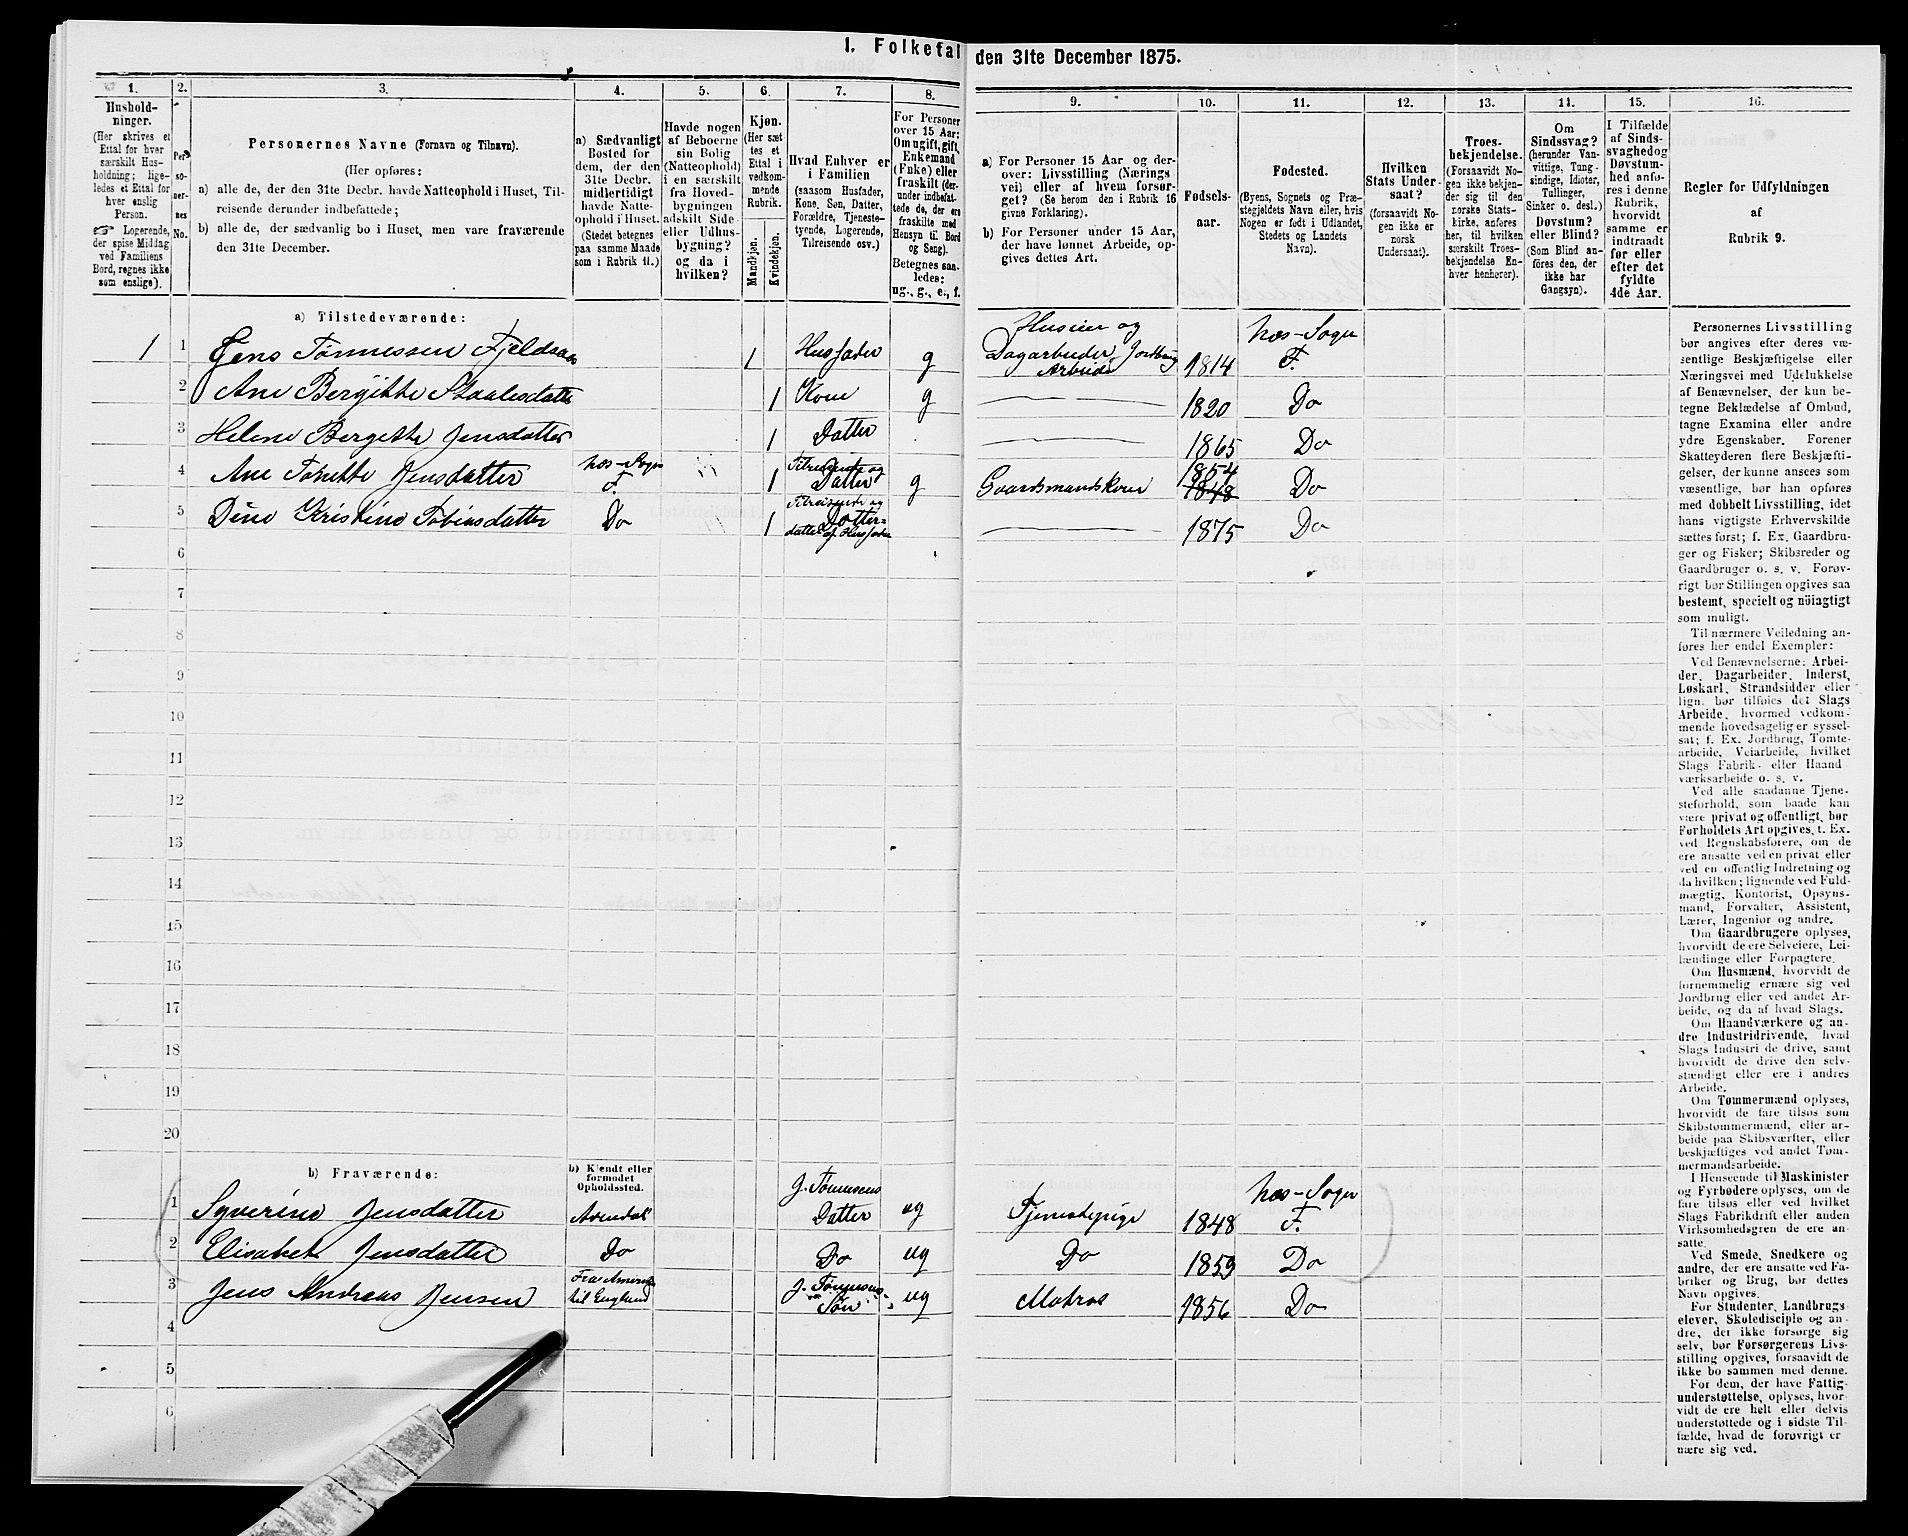 I. Folketal den 31te December 1875.
1. 2. 3. 4. 5. 6. 7. 8. 9. 10. 11. 12. 13. 14. 15. 16.
Hushold-
ninger.
(Her skrives et
Ettal for hver
særskilt Hus-
holdning; lige-
ledes et Ettal for
hver enslig
Person.
Logerende,
der spise Middag
ved Familiens
Bord, regnes ikke
som enslige).
Per-
so-
ner-
nes
No.
Personernes Navne (Fornavn og Tilnavn).
(Her opføres:
a) alle de, der den 31te Decbr. havde Natteophold i Huset, Til-
reisende derunder indbefattede;
b) alle de, der sædvanlig bo i Huset, men vare fraværende
den 31te December.
a) Sædvanligt
Bosted for
dem, der den
31te Decbr.
midlertidigt
havde Natte-
ophold i Huset.
(Stedet betegnes
paa samme Maade
som i Rubrik 11.)
Havde nogen
af Beboerne
sin Bolig
(Natteophold)
i en særskilt
fra Hoved-
bygningen
adskilt Side-
eller Udhus-
bygning?
og da i
hvilken?
Kjøn.
(Her sæt-
tes et
Ettal i
vedkom-
mende
Rubrik.
Mandkjøn.
Kvindekjøn.
Hvad Enhver er
i Familien
(saasom Husfader,
Kone, Søn, Datter,
Forældre, Tjeneste-
tyende, Logerende,
Tilreisende osv.)
For Personer
over 15 Aar:
Om ugift, gift,
Enkemand
(Enke) eller
fraskilt (der-
under indbefat-
tede de, der ere
fraskilte med
Hensyn til Bord
og Seng).
Betegnes saa-
ledes:
ug., g., e., f.
a) For Personer 15 Aar og der-
over: Livsstilling (Nærings-
vei) eller af hvem forsør-
get? (Se herom den i Rubrik 16
givne Forklaring).
b) For Personer under 15 Aar,
der have lønnet Arbeide, op-
gives dettes Art.
Fødsels-
aar.
Fødested.
(Byens, Sognets og Præ-
stegjeldets Navn eller, hvis
Nogen er født i Udlandet,
Stedets og Landets
Navn).
Hvilken
Stats Under-
saat?
(forsaavidt No-
gen ikke er
norsk
Undersaat).
Troes-
bekjendelse.
(Forsaavidt No-
gen ikke bekjen-
der sig til den
norske Stats-
kirke, anføres
her, til hvilken
særskilt Troes-
bekjendelse En-
hver henhører).
Om
Sindssvag?
(herunder Van-
vittige, Tung-
sindige, Idioter,
Tullinger,
Sinker o. desl.)
Døvstum?
eller Blind?
(Som Blind an-
føres den, der
ikke har
Gangsyn).
I Tilfælde
af Sinds-
svaghed og
Døvstum-
hed anfø-
res i denne
Rubrik,
hvorvidt
samme er
indtraadt
før eller
efter det
fyldte
4de Aar.
Regler for Udfyldningen
af
Rubrik 9.
a) Tilstedeværende:
1 1 Jens Tønnessen Fjeldsaas 1 Husfader g Huseier og Dagarbeider Jordbrug Arbeide 1814 Næs-Sogn F.
2 Ane Bergitte Staalesdatter 1 Kone g 1820 Do
3 Helene Bergette Jensdatter 1 Datter 1865 Do
4 Ane Tonette Jensdatter Næs-Sogn F. 1 Tilreisende og Datter g Gaardsmandskone 1854 1848 Do
5 Dine Kristine Tobiasdatter Do 1 Tilreisende og Datter- datter af Husfader 1875 Do
6
7
8
9
10
11
12
13
14
15
16
17
18
19
20
b) Fraværende:
b) Kjendt eller
formodet
Opholdssted.
1 Syverine Jensdatter Arendal J. Tønnesens Datter ug Tjenestepige 1848 Næs-Sogn F.
2 Elisabet Jensdatter Do Do ug Do 1859 Do
3 Jens Andreas Jensen Fra Amerika til England J. Tønnesens Søn ug Matros 1856 Do
4
5
6
Personernes Livsstilling
bør angives efter deres væ-
sentlige Beskjæftigelse eller
Næringsvei med Udelukkelse
af Benævnelser, der kun be-
tegne Beklædelse af Ombud,
tagne Examina eller andre
ydre Egenskaber. Forener
Skatteyderen flere Beskjæfti-
gelser, der kunne ansees som
væsentlige, bør han opgives
med dobbelt Livsstilling, idet
hans vigtigste Erhvervskilde
sættes først; f. Ex. Gaardbru-
ger og Fisker; Skibsreder og
Gaardbruger o. s. v. Forøv-
rigt bør Stillingen opgives saa
bestemt, specielt og nøiagtigt
som muligt.
Til nærmere Veiledning an-
føres her endel Exempler:
Ved Benævnelserne: Arbei-
der, Dagarbeider, Inderst,
Løskarl, Strandsidder eller
lign. bør tilføies det Slags
Arbeide, hvormed vedkom-
mende hovedsagelig er syssel-
sat; f. Ex. Jordbrug, Tomte-
arbeide, Veiarbeide, hvilket
Slags Fabrik- eller Haand-
værksarbeide o. s. v.
Ved alle saadanne Tjene-
steforhold, som baade kan
være privat og offentligt, bør
Forholdets Art opgives, t. Ex.
ved Regnskabsførere, om de
ere ansatte ved en privat eller
ved en offentlig Indretning og
da hvilken; lignende ved Fuld-
mægtig, Kontorist, Opsyns-
mand, Forvalter, Assistent,
Lærer, Ingeniør og andre.
Om Gaardbrugere oplyses,
hvorvidt de ere Selveiere, Lei-
lændinge eller Forpagtere.
Om Husmænd, hvorvidt de
fornemmelig ernære sig ved
Jordbrug eller ved andet Ar-
beide, og da af hvad Slags.
Om Haandværkere og an-
dre Industridrivende, hvad
Slags Industri de drive, samt
hvorvidt de drive den selv-
stændigt eller ere i andres
Arbeide.
Om Tømmermænd oplyses,
hvorvidt de fare tilsøs som
Skibstømmermænd, eller ar-
beide paa Skibsværfter, eller
beskjæftiges ved andet Tøm-
mermandsarbeide.
I Henseende til Maskinister
og Fyrbødere oplyses, om de
fare tilsøs eller ved hvilket
Slags Fabrikdrift eller anden
Virksomhedsgren de ere an-
satte.
Ved Smede, Snedkere og
andre, der ere ansatte ved Fa-
briker og Brug, bør dettes
Navn opgives.
For Studenter, Landbrugs-
elever, Skoledisciple og an-
dre, der ikke forsørge sig
selv, bør Forsørgerens Livs-
stilling opgives, forsaavidt de
ikke bo sammen med denne.
For dem, der have Fattig-
understøttelse, oplyses, hvor-
vidt de ere helt eller delvis
understøttede og i sidste Til-
fælde, hvad de forøvrigt er-
nære sig ved.